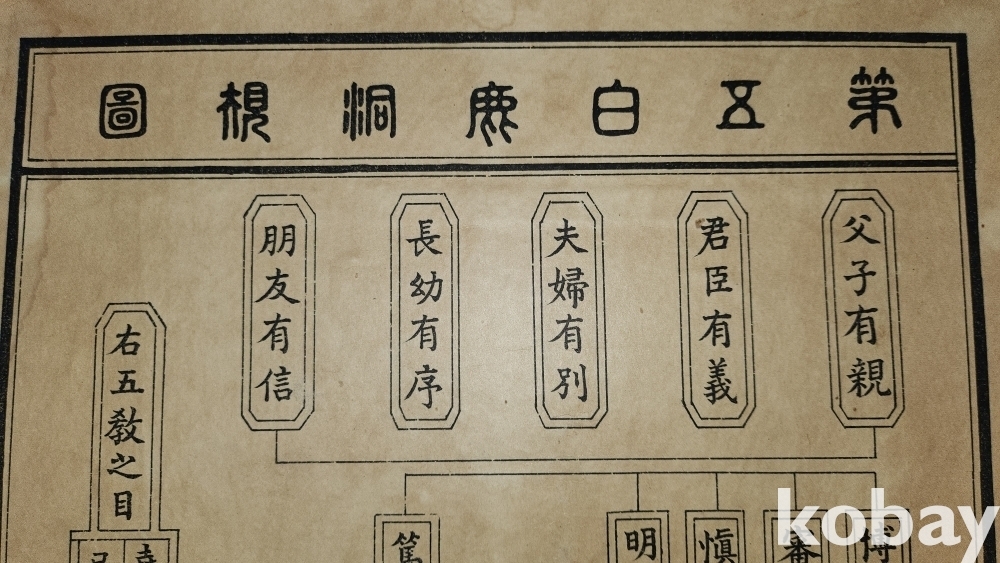 第五白鹿洞規圖
父子有親
君臣有義
夫婦有別
長幼有序
朋友有信
右五敎之目
博
審
愼
明
篤
kobay